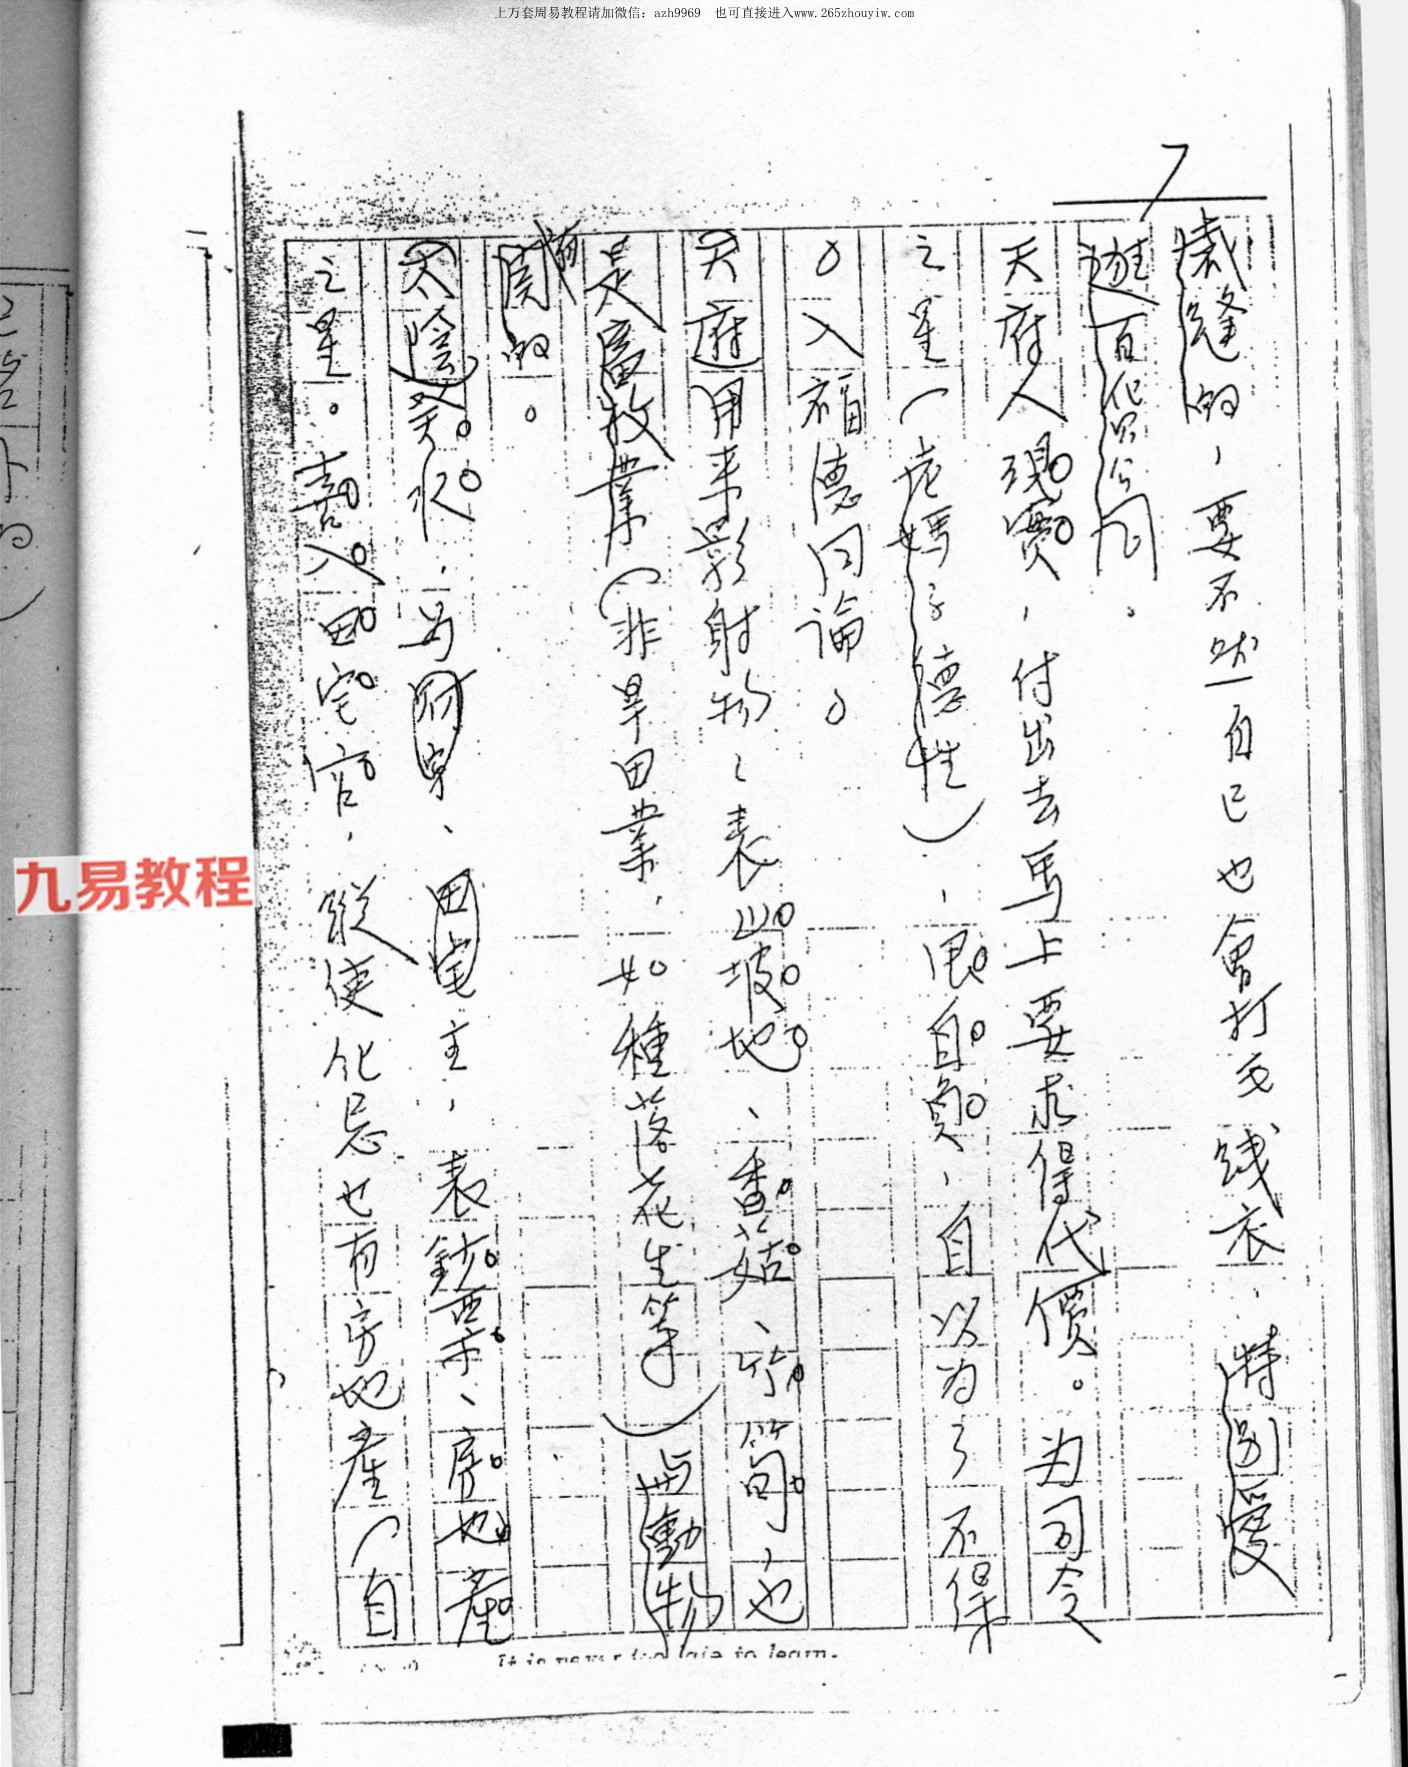 上万套周易教程请加微信：azh9969　也可直接进入www.265zhouyiw.com
7
裁縫的，要不然自己也會打毛线衣，特别愛
逛百貨公司。
天府人現實，付出去馬上要求得代價。为司令
之星（老媽子德性），很自負，自以为了不得
。入福德同論。
天府用来影射物：表山坡地、香菇、竹筍，也
是畜牧業（非旱田業，如種落花生等）與動物
有関的。
太陰癸水，为財帛、田宅主，表鈔票、房地產
之星。喜入田宅宫，縱使化忌也有房地產（自
九易教程
It is never too late to learn.